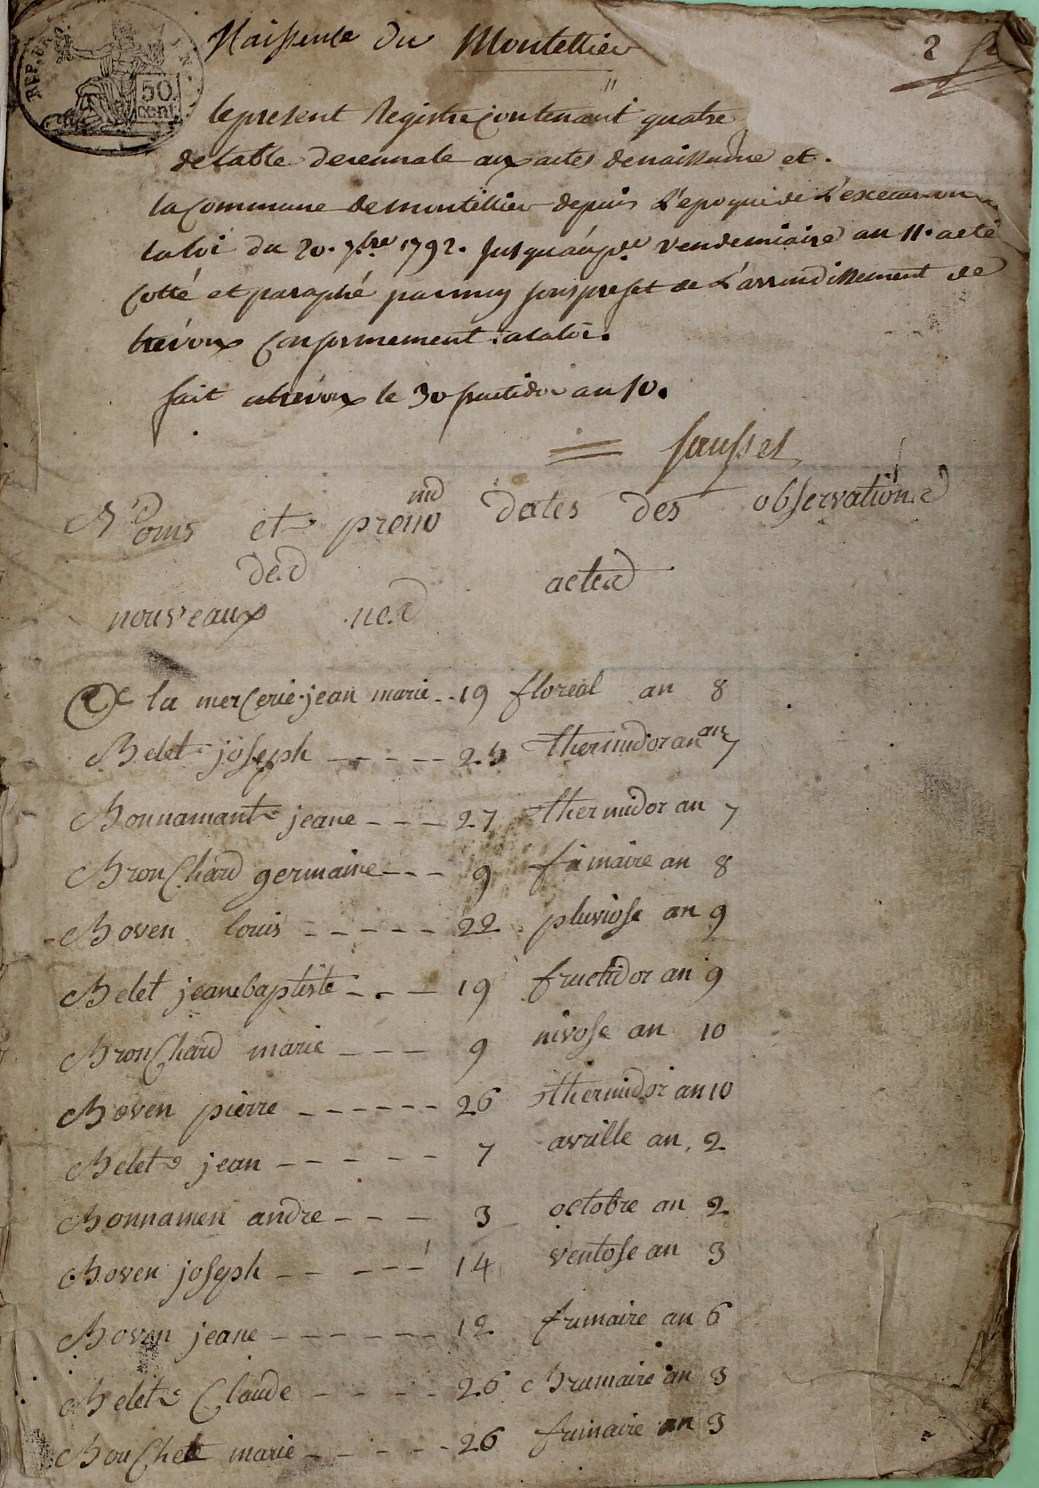 Naissence du Montellier
2
REP. FRA.
50 cent.
le present Registre contenant quatre
de table decennale aux actes de naissance et
la Commune de montellier depuis L'epoque de L'execution
la loi du 20. 7bre 1792. Jusqu'au pr. vendemiaire an 11. a eté
Cotté et paraphé par moy sous prefet de L'arrondissement de
trévoux Conformement a la loi.
fait a trévoux le 30 fructidor an 10.
Noms et prenomd dates des observationd
ded acted
nouveaux ned
De la mercerie jean marie 19 floreal an 8
Belet joseph 25 thermidor an 7
Bonnamant jeane 27 thermidor an 7
Bronchard germaine 9 frimaire an 8
Boven louis 22 pluviose an 9
Belet jeanbaptiste 19 fructidor an 9
Bronchard marie 9 nivose an 10
Boven pierre 26 thermidor an 10
Belet jean 7 avrille an 2
Bonnamen andre 3 octobre an 2
Boven joseph 14 ventose an 3
Boven jeane 12 frimaire an 6
Belet Claude 26 Brumaire an 3
Bouchet marie 26 frimaire an 3